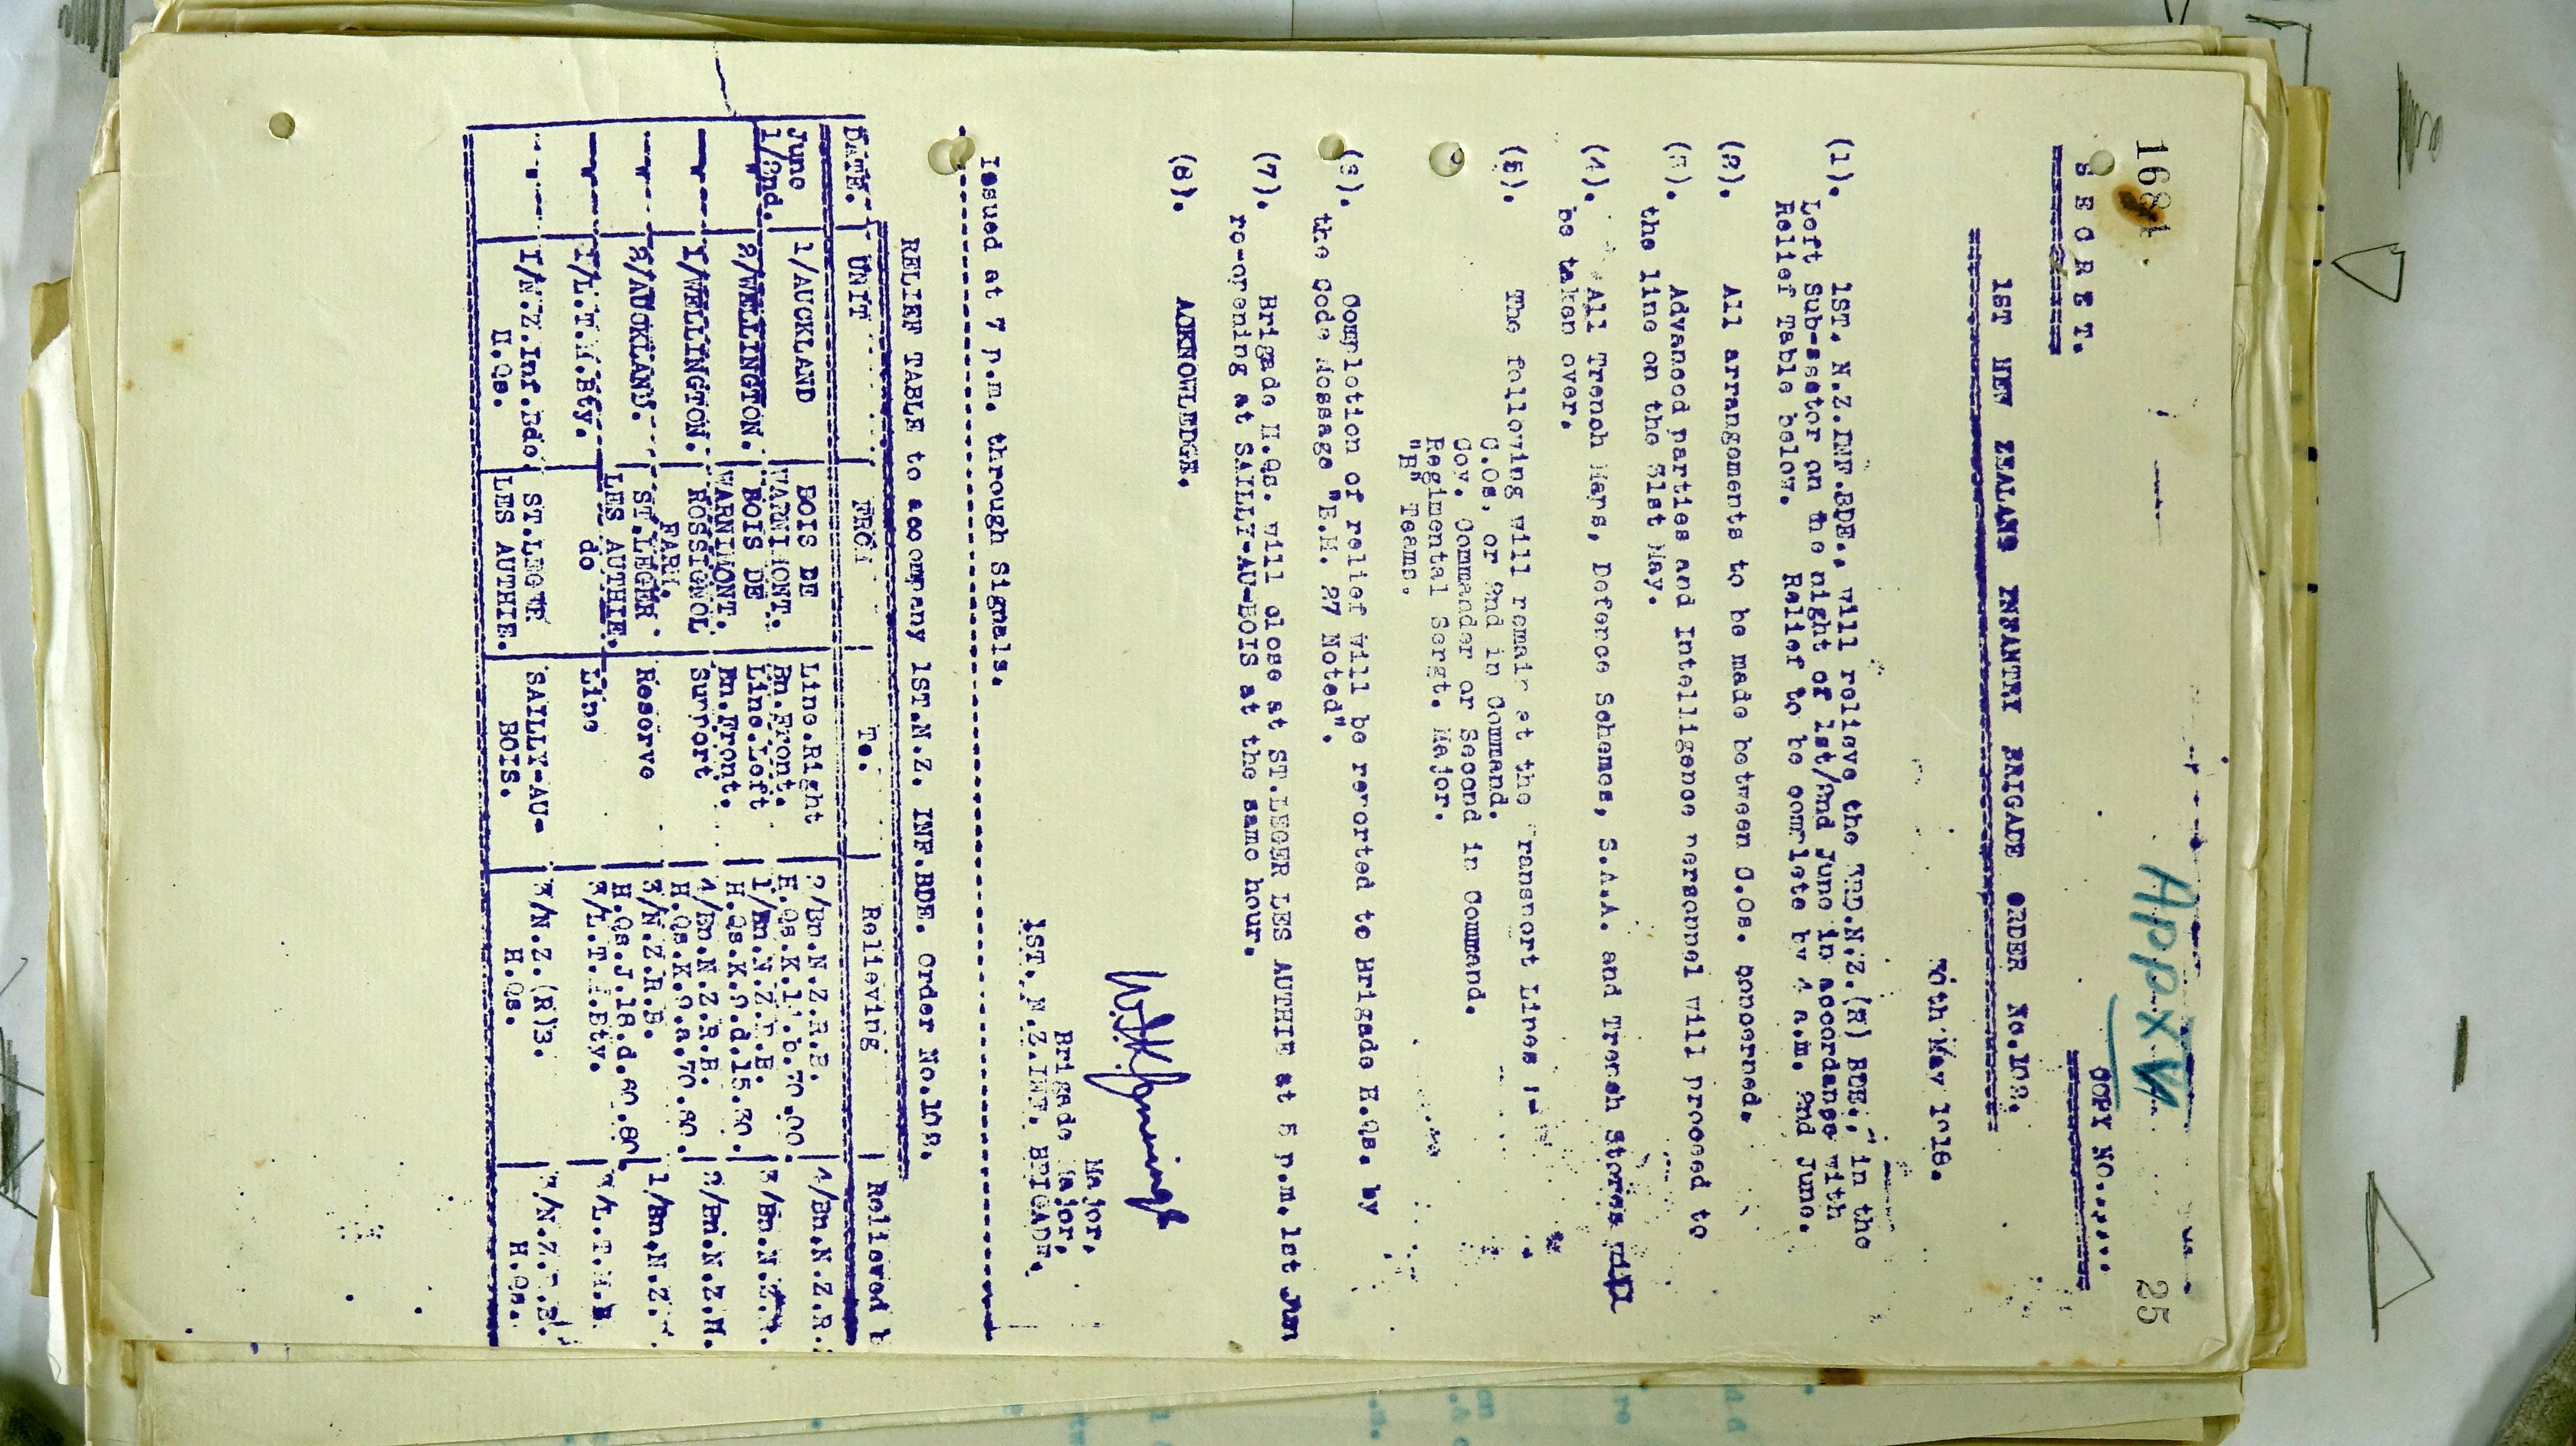 1684
25
App XVI
SECRET.
COPY NO......
1ST NEW ZEALAND INFANTRY BRIGADE ORDER No.102.
May 1918.
(1). 1ST. N.Z.INF.BDE., will relieve the N.Z.(R) BDE., in the
Left Sub-sector on the night of 1st/2nd June in accordance with
Relief Table below. Relief to be complete by 4 a.m. 2nd June.
(2). All arrangements to be made between C.Os. concerned.
(3). Advanced parties and Intelligence personnel will proceed to
the line on the 31st May.
(4). All Trench Maps, Defence Schemes, S.A.A. and Trench stores will
be taken over.
(5). The following will remain at the Transport Lines :-
C.Os. or 2nd in Command.
Coy. Commander or Second in Command.
Regimental Sergt. Major.
"B" Teams.
(6). Completion of relief will be reported to Brigade H.Qs. by
the Code Message "B.M. 27 Noted".
(7). Brigade H.Qs. will close at ST.LEGER LES AUTHIE at 5 p.m. 1st Jun
re-opening at SAILLY-AU-BOIS at the same hour.
(8). ACKNOWLEDGE.
Major,
Brigade Major,
1ST. N.Z.INF. BRIGADE.
Issued at 7 p.m. through Signals.
RELIEF TABLE to accompany 1ST.N.Z. INF.BDE. Order No.102.
DATE. UNIT FROM To. Relieving Relieved
June 1/AUCKLAND BOIS DE Line.Right 2/Bn.N.Z.R.B. 4/Bn.N.Z.R.
1/2nd. WARNIMONT. Bn.Front. H.Qs.K.
2/WELLINGTON. BOIS DE Line.Left 1/Bn.N.Z.R.B. 3/Bn.N.Z.
WARNIMONT. Bn.Front. H.Qs.K.
1/WELLINGTON. ROSSIGNOL Support 4/Bn.N.Z.R.B. 2/Bn.N.Z.
FARM. H.Qs.K.
2/AUCKLAND. ST.LEGER Reserve 3/N.Z.R.B. 1/Bn.N.Z.
LES AUTHIE. H.Qs.J.18.d.
1/L.T.M.Bty. do Line 3/L.T.M.Bty. L.T.M.
1/N.Z.Inf.Bde. ST.LEGER SAILLY-AU- 3/N.Z.(R)B.
H.Qs. LES AUTHIE. BOIS. H.Qs. H.Qs.